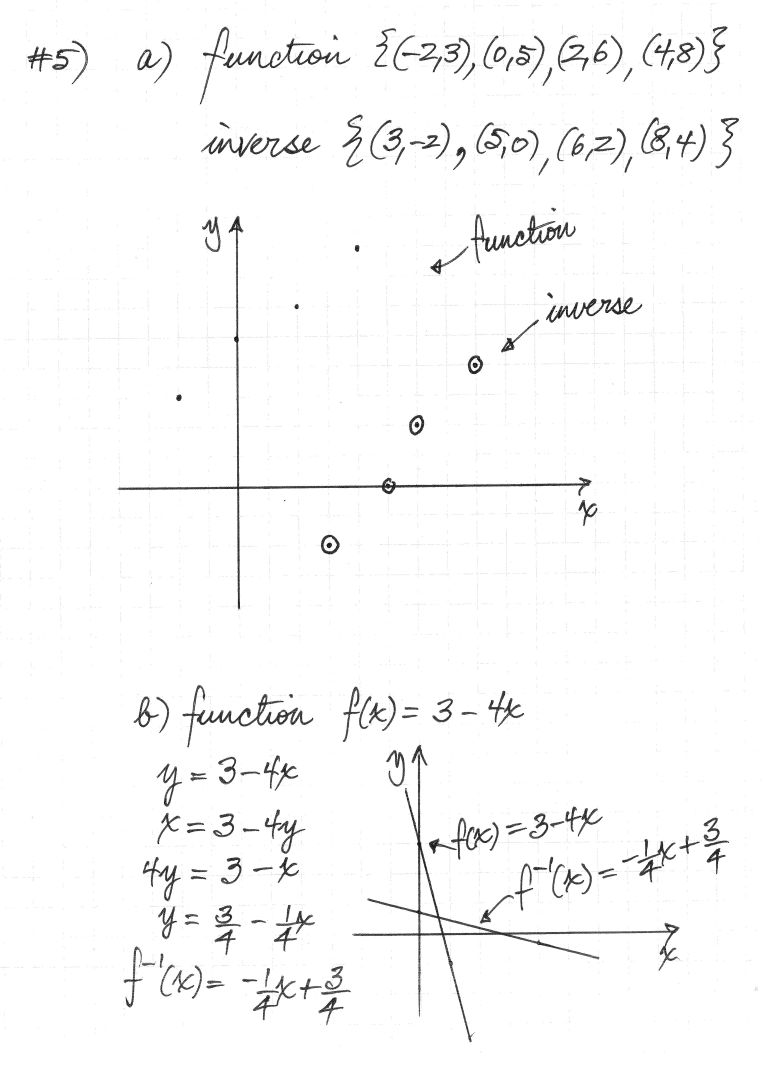 #5) a) function {(-2,3),(0,5),(2,6),(4,8)}
inverse {(3,-2),(5,0),(6,2),(8,4)}
y
function
inverse
x
b) function f(x) = 3 - 4x
y = 3 - 4x
x = 3 - 4y
4y = 3 - x
y = 3/4 - 1/4x
f⁻¹(x) = -1/4x + 3/4
y
f(x) = 3 - 4x
f⁻¹(x) = -1/4x + 3/4
x